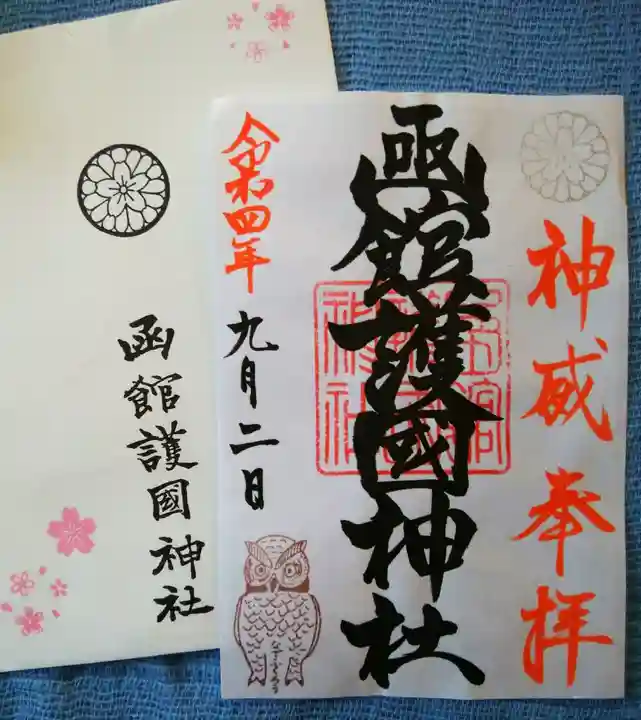 神威奉拝
函館護國神社
令和四年
九月二日
函館護國神社